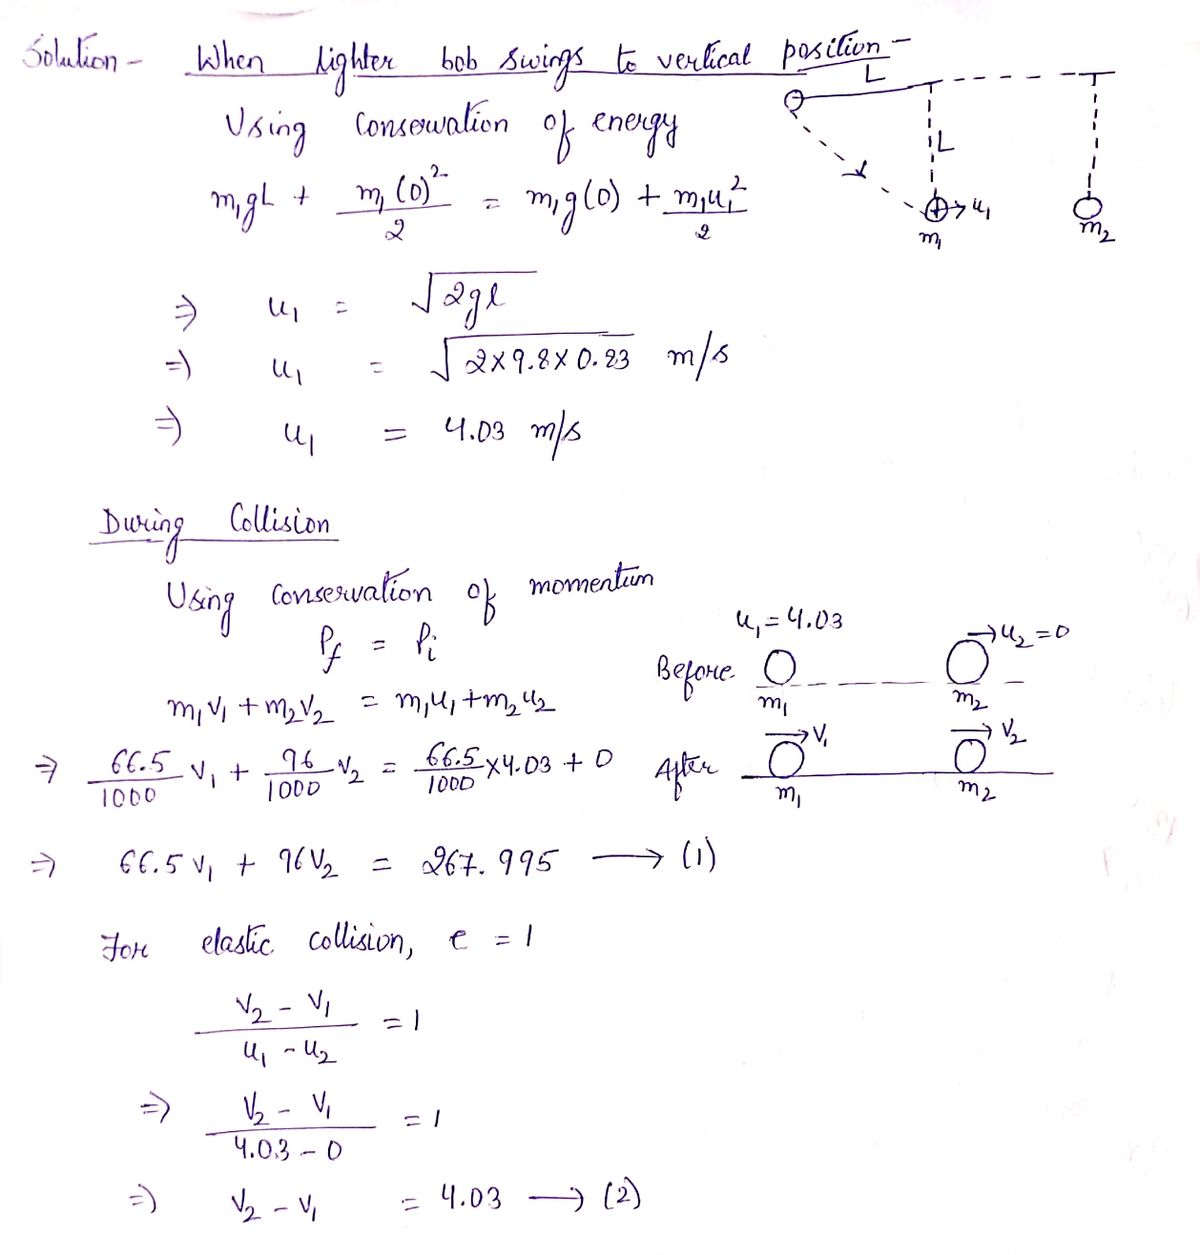 Solution - When lighter bob swings to vertical position -
L
Using Conservation of energy
L
m₁gL + m₁(0)²/2 = m₁g(0) + m₁u₁²/2
u₁
m₁
m₂
⇒ u₁ = √2gl
⇒ u₁ = √2×9.8×0.83 m/s
⇒ u₁ = 4.03 m/s
During Collision
Using Conservation of momentum
Pf = Pi
u₁ = 4.03
→u₂ = 0
Before
m₁
m₂
m₁v₁ + m₂v₂ = m₁u₁ + m₂u₂
⇒ 66.5/1000 v₁ + 96/1000 v₂ = 66.5/1000 × 4.03 + 0
After
→v₁
→v₂
m₁
m₂
⇒ 66.5 v₁ + 96 v₂ = 267.995 → (1)
For elastic collision, e = 1
v₂ - v₁ / u₁ - u₂ = 1
⇒ v₂ - v₁ / 4.03 - 0 = 1
⇒ v₂ - v₁ = 4.03 → (2)